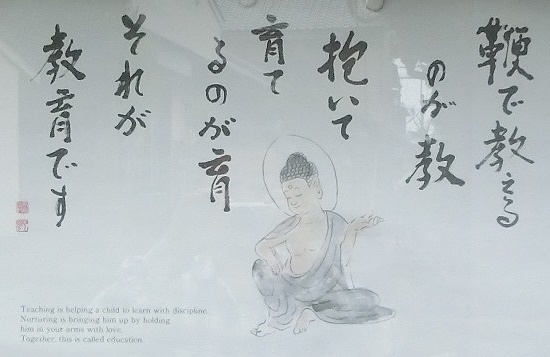 鞭で教える
のが教
抱いて
育て
るのが育
それが
教育です
Teaching is helping a child to learn with discipline.
Nurturing is bringing him up by holding
him in your arms with love.
Together, this is called education.